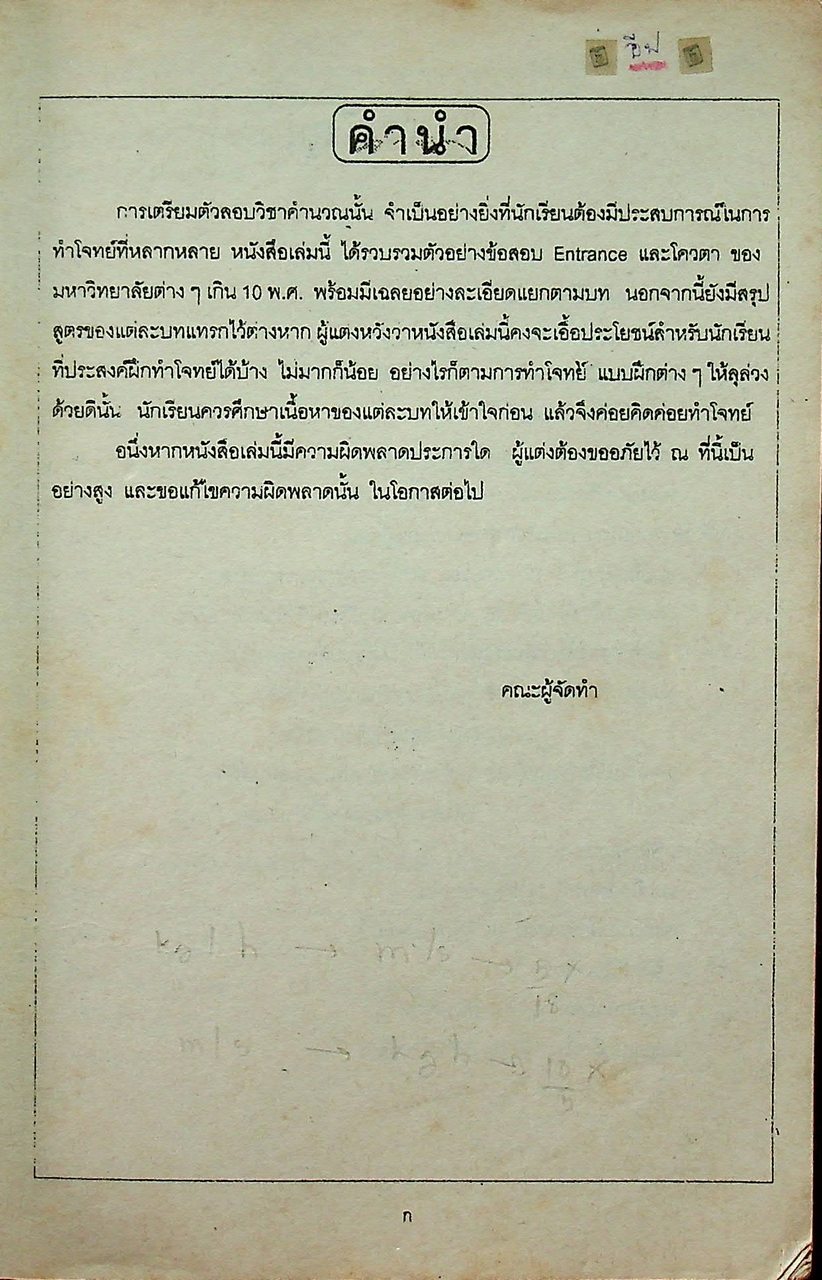 คำนำ
การเตรียมตัวสอบวิชาคำนวณนั้น จำเป็นอย่างยิ่งที่นักเรียนต้องมีประสบการณ์ในการ
ทำโจทย์ที่หลากหลาย หนังสือเล่มนี้ ได้รวบรวมตัวอย่างข้อสอบ Entrance และโควตา ของ
มหาวิทยาลัยต่าง ๆ เกิน 10 พ.ศ. พร้อมมีเฉลยอย่างละเอียดแยกตามบท นอกจากนี้ยังมีสรุป
สูตรของแต่ละบทแทรกไว้ต่างหาก ผู้แต่งหวังว่าหนังสือเล่มนี้คงจะเอื้อประโยชน์สำหรับนักเรียน
ที่ประสงค์ฝึกทำโจทย์ได้บ้าง ไม่มากก็น้อย อย่างไรก็ตามการทำโจทย์ แบบฝึกต่าง ๆ ให้ลุล่วง
ด้วยดีนั้น นักเรียนควรศึกษาเนื้อหาของแต่ละบทให้เข้าใจก่อน แล้วจึงค่อยคิดค่อยทำโจทย์
อนึ่งหากหนังสือเล่มนี้มีความผิดพลาดประการใด ผู้แต่งต้องขออภัยไว้ ณ ที่นี้เป็น
อย่างสูง และขอแก้ไขความผิดพลาดนั้น ในโอกาสต่อไป
คณะผู้จัดทำ
ก